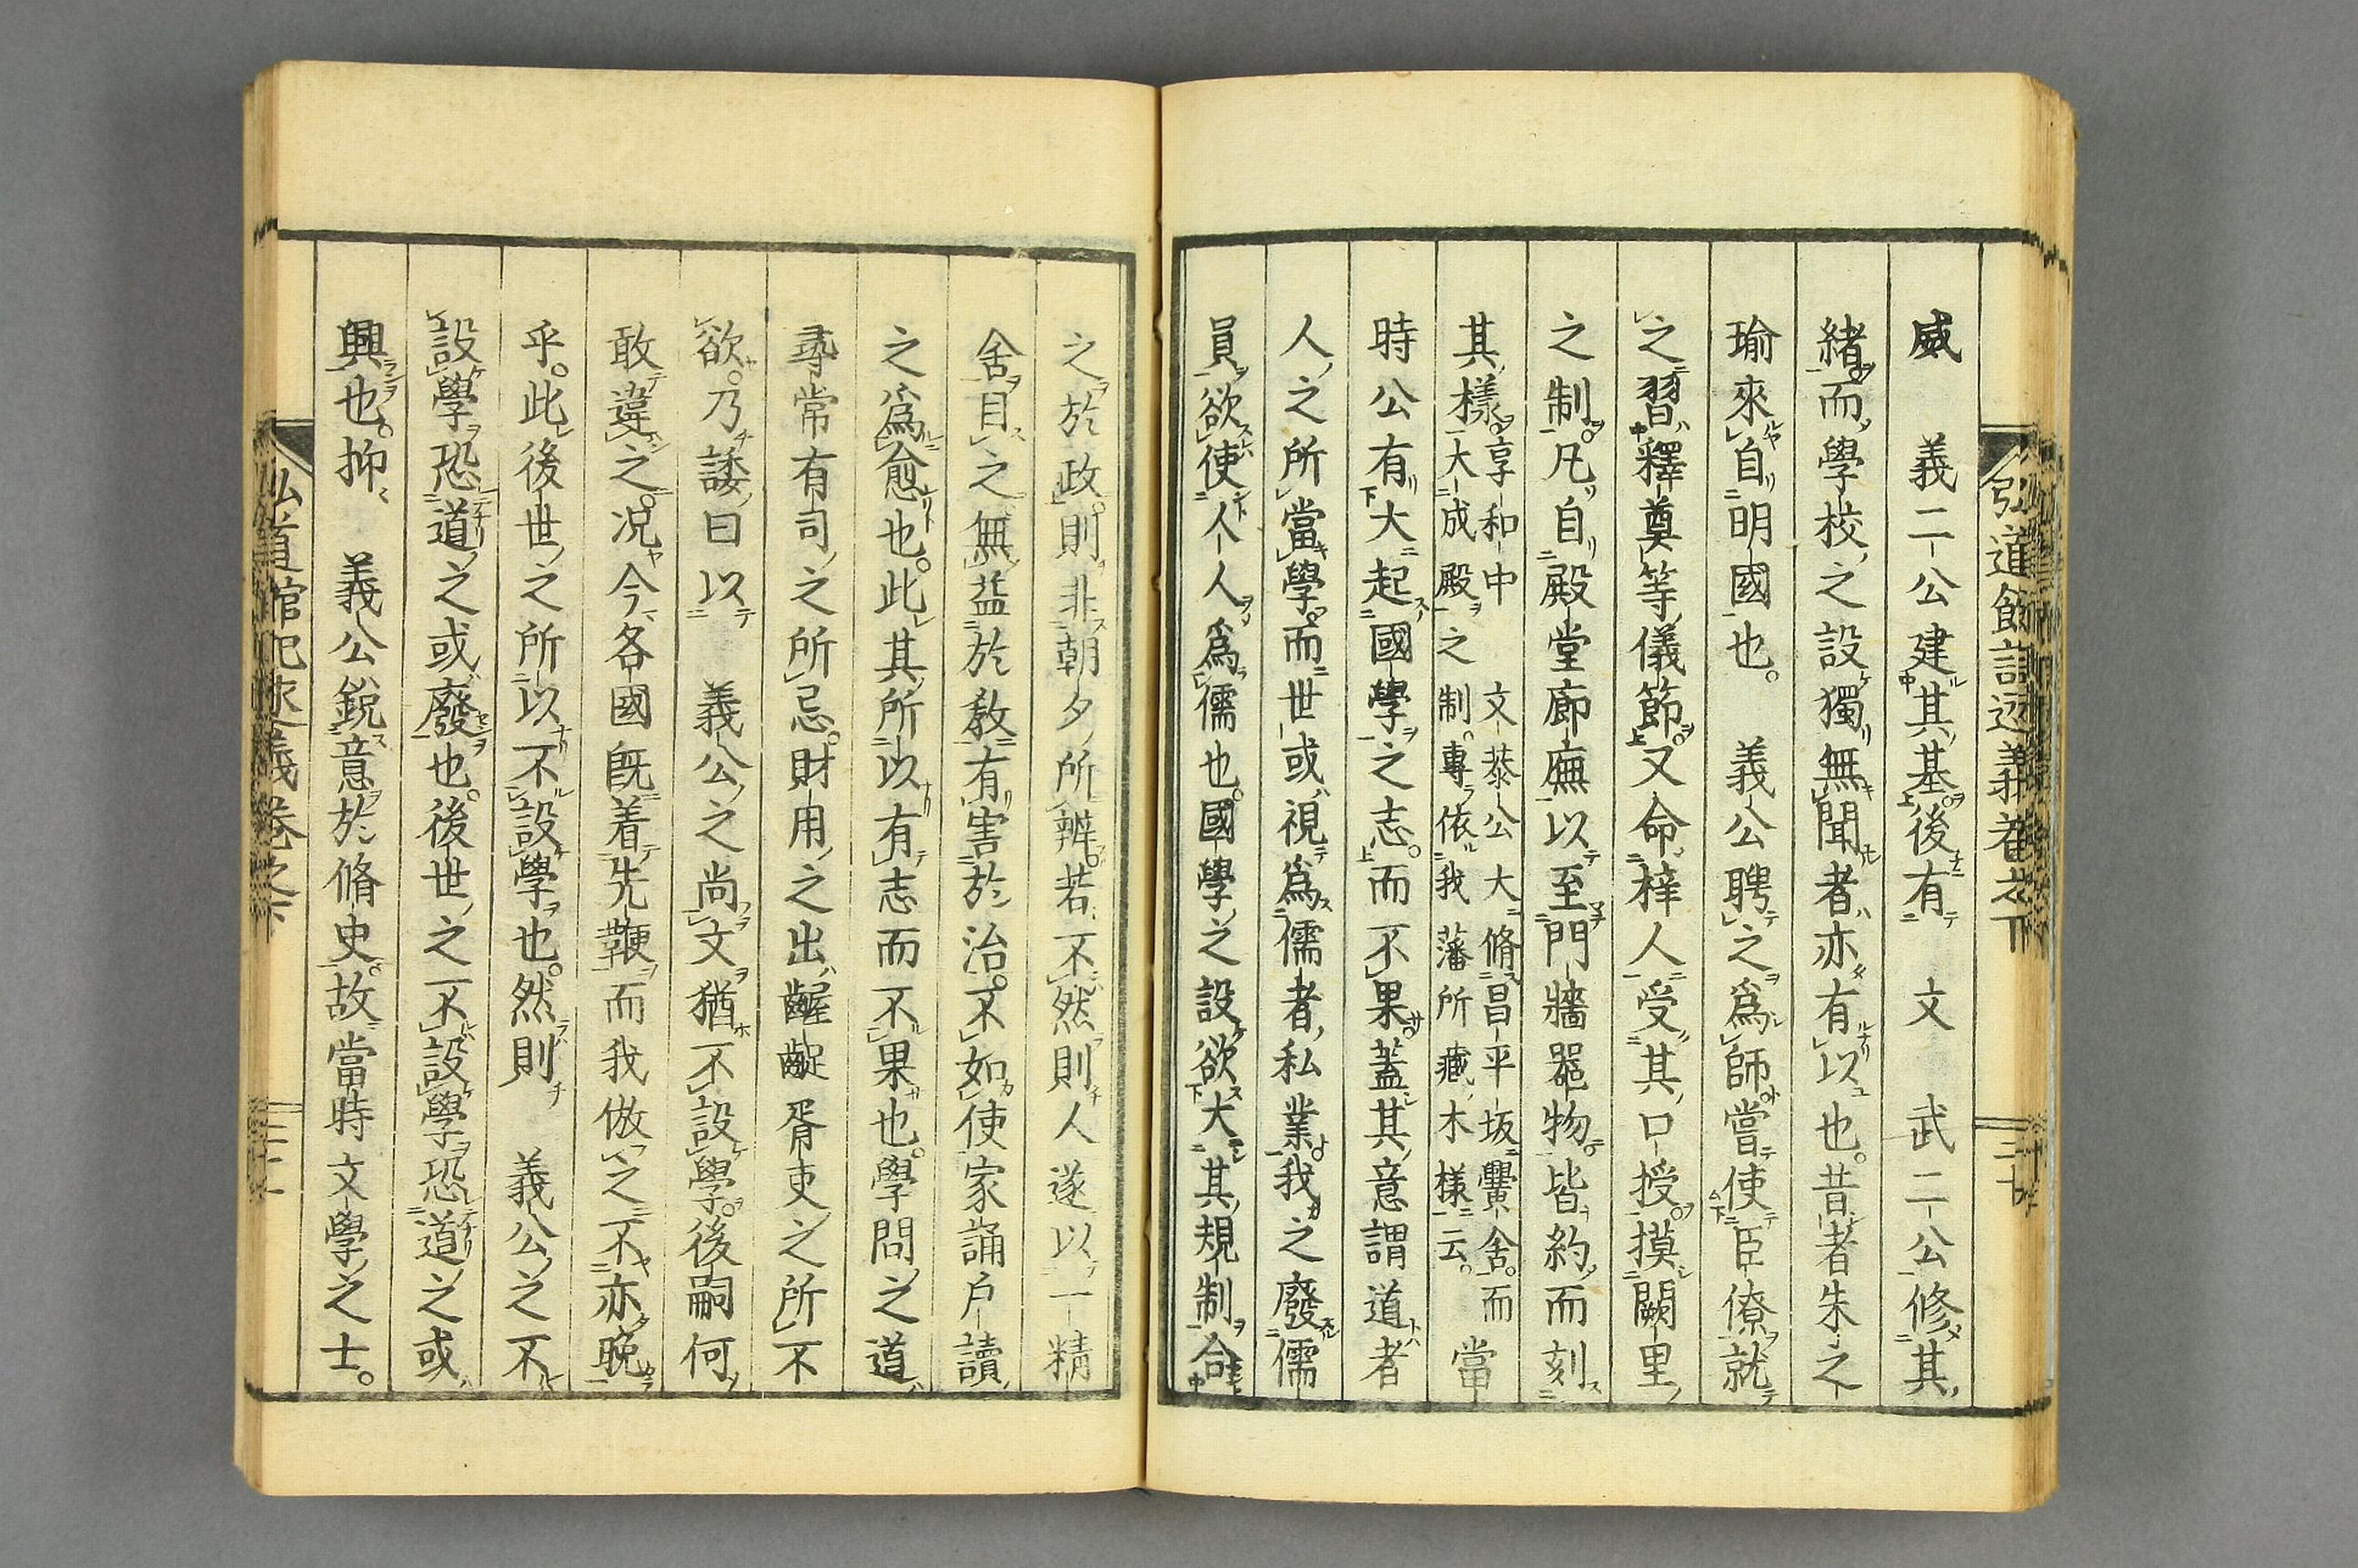 弘道館記述義卷之下
威　義二公建其基後有　文　武二公修其
緒而學校之設獨無聞者亦有以也。昔者朱之
瑜來自明國也。　義公聘之爲師嘗使臣僚就
之習釋奠等儀節又命梓人受其口授摸闕里
之制凡自殿堂廊廡以至門牆器物皆約而刻
其樣享和中　文恭公大脩昌平坂黌舍。而
大成殿之制。專依我藩所藏木樣云。當
時公有大起國學之志。而不果蓋其意謂道者
人之所當學而世或視爲儒者私業我之廢儒
員欲使人人爲儒也。國學之設欲大其規制合
之於政。則非朝夕所辨。若不然則人遂以一精
舍目之無益於敎有害於治。不如使家誦戶讀
之爲愈也。此其所以有志而不果也。學問之道
尋常有司之所忌。財用之出齷齪胥吏之所不
欲。乃諉曰以　義公之尚文猶不設學。後嗣何
敢違之。况今各國旣着先鞭而我倣之不亦晚
乎。此後世之所以不設學也。然則　義公之不
設學恐道之或廢也。後世之不設學恐道之或
興也。抑　義公銳意於脩史。故當時文學之士。
弘道館記述義卷之下